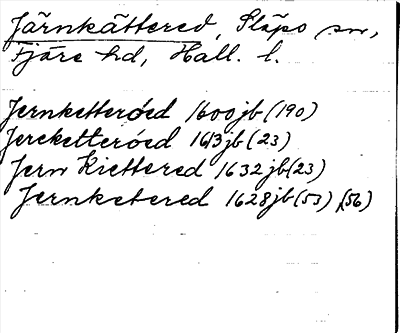 Järnkättered, Släps sn,
Fjäre hd, Hall. l.
Jernketteröed 1600 jb (190)
Jercketteröed 1613 jb (23)
Jern Kiettered 1632 jb (23)
Jernketered 1628 jb (53) (56)